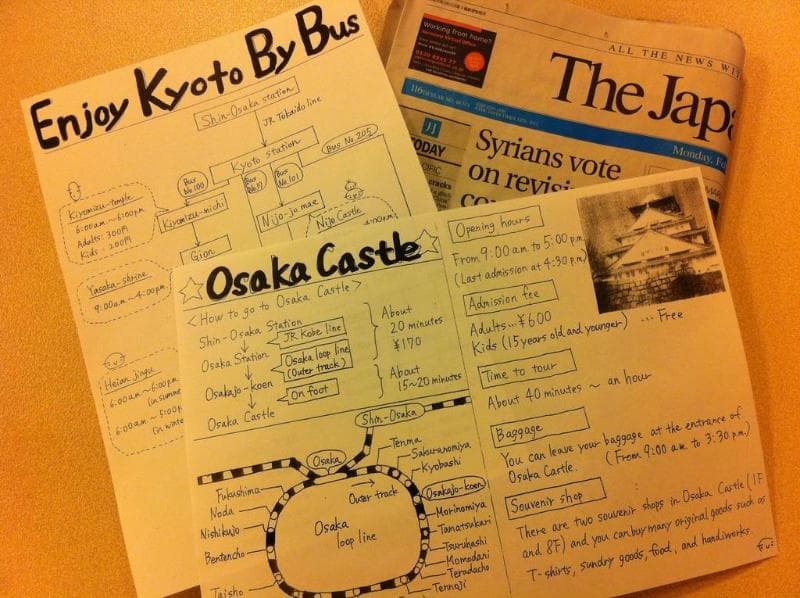 Enjoy Kyoto By Bus
Shin-Osaka station
JR Tokaido line
Kyoto station
Bus No.205
Bus No.100
Bus No.101
Kiyomizu-temple
6:00am~6:00pm
Adults: 300円
Kids: 200円
Kiyomizu-michi
Nijo-jo mae
Nijo Castle
Gion
Yasaka-shrine
9:00am~4:00pm
Heian jingu
6:00am~6:00pm
(in summe
6:00am~5:00
(in winte
Working from home?
ALL THE NEWS WI
The Jap
JJ
TODAY
Monday, Fe
Syrians vote
on revisi
Osaka Castle
<How to go to Osaka Castle>
Shin-Osaka Station
JR Kobe line
Osaka Station
Osaka loop line
(Outer track)
Osakajo-koen
On foot
Osaka Castle
About
20 minutes
¥170
About
15~20 minutes
Shin-Osaka
Osaka
Tenma
Sakuranomiya
Kyobashi
Osakajo-koen
Morinomiya
Tamatsukuri
Tsuruhashi
Momodani
Teradacho
Tennoji
Outer track
Osaka
loop line
Fukushima
Noda
Nishikujo
Bentencho
Taisho
Opening hours
From 9:00 a.m. to 5:00 p.m.
(Last admission at 4:30 p.m.)
Admission fee
Adults...¥600
Kids (15 years old and younger) ... Free
Time to tour
About 40 minutes ~ an hour
Baggage
You can leave your baggage at the entrance of
Osaka Castle. (From 9:00 a.m. to 3:30 p.m.)
Souvenir shop
There are two souvenir shops in Osaka Castle (1F
and 8F) and you can buy many original goods such as
T-shirts, sundry goods, food, and handiworks.